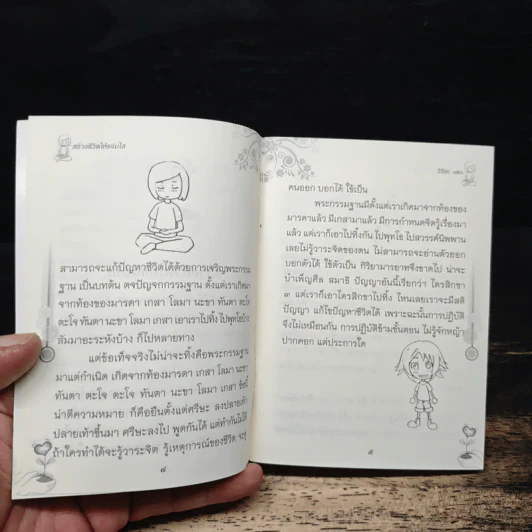 สร้างชีวิตให้แจ่มใส
สามารถจะแก้ปัญหาชีวิตได้ด้วยการเจริญพระกรรม
ฐาน เป็นบทต้น ตจปัญจกกรรมฐาน ตั้งแต่เราเกิดมา
จากท้องของมารดา เกสา โลมา นะขา ทันตา ตะโจ
ตะโจ ทันตา นะขา โลมา เกสา เอาเราไปทิ้ง ไปพุทโธบ้าง
สัมมาอะระหังบ้าง ก็ไปหลายทาง
แต่ข้อเท็จจริงไม่น่าจะทิ้งคือพระกรรมฐาน
มาแต่กำเนิด เกิดจากท้องมารดา เกสา โลมา นะขา
ทันตา ตะโจ ตะโจ ทันตา นะขา โลมา เกสา ข้อนี้
น่าตีความหมาย ก็คือยืนตั้งแต่ศรีษะ ลงปลายเท้า
ปลายเท้าขึ้นมา ศรีษะลงไป พูดกันได้ แต่ทำกันไม่ได้
ถ้าใครทำได้จะรู้วาระจิต รู้เหตุการณ์ของชีวิต จะดู
๔
คนออก บอกได้ ใช้เป็น
พระกรรมฐานมีตั้งแต่เราเกิดมาจากท้องของ
มารดาแล้ว มีเกสามาแล้ว มีการกำหนดจิตรู้เรื่องมา
แล้ว แต่เราก็เอาไปทิ้งกัน ไปพุทโธ ไปสวรรค์นิพพาน
เลยไม่รู้วาระจิตของตน ไม่สามารถจะอ่านตัวออก
บอกตัวได้ ใช้ตัวเป็น กิริยามารยาทจึงขาดไป น่าจะ
บำเพ็ญศีล สมาธิ ปัญญาอันนี้เรียกกว่า ไตรสิกขา
๓ แต่เราก็เอาไตรสิกขาไปทิ้ง ไหนเลยเราจะมีสติ
ปัญญา แก้ไขปัญหาชีวิตได้ เพราะฉะนั้นการปฏิบัติ
จึงไม่เหมือนกัน การปฏิบัติข้ามขั้นตอน ไม่รู้จักหญ้า
ปากคอก แต่ประการใด
๕